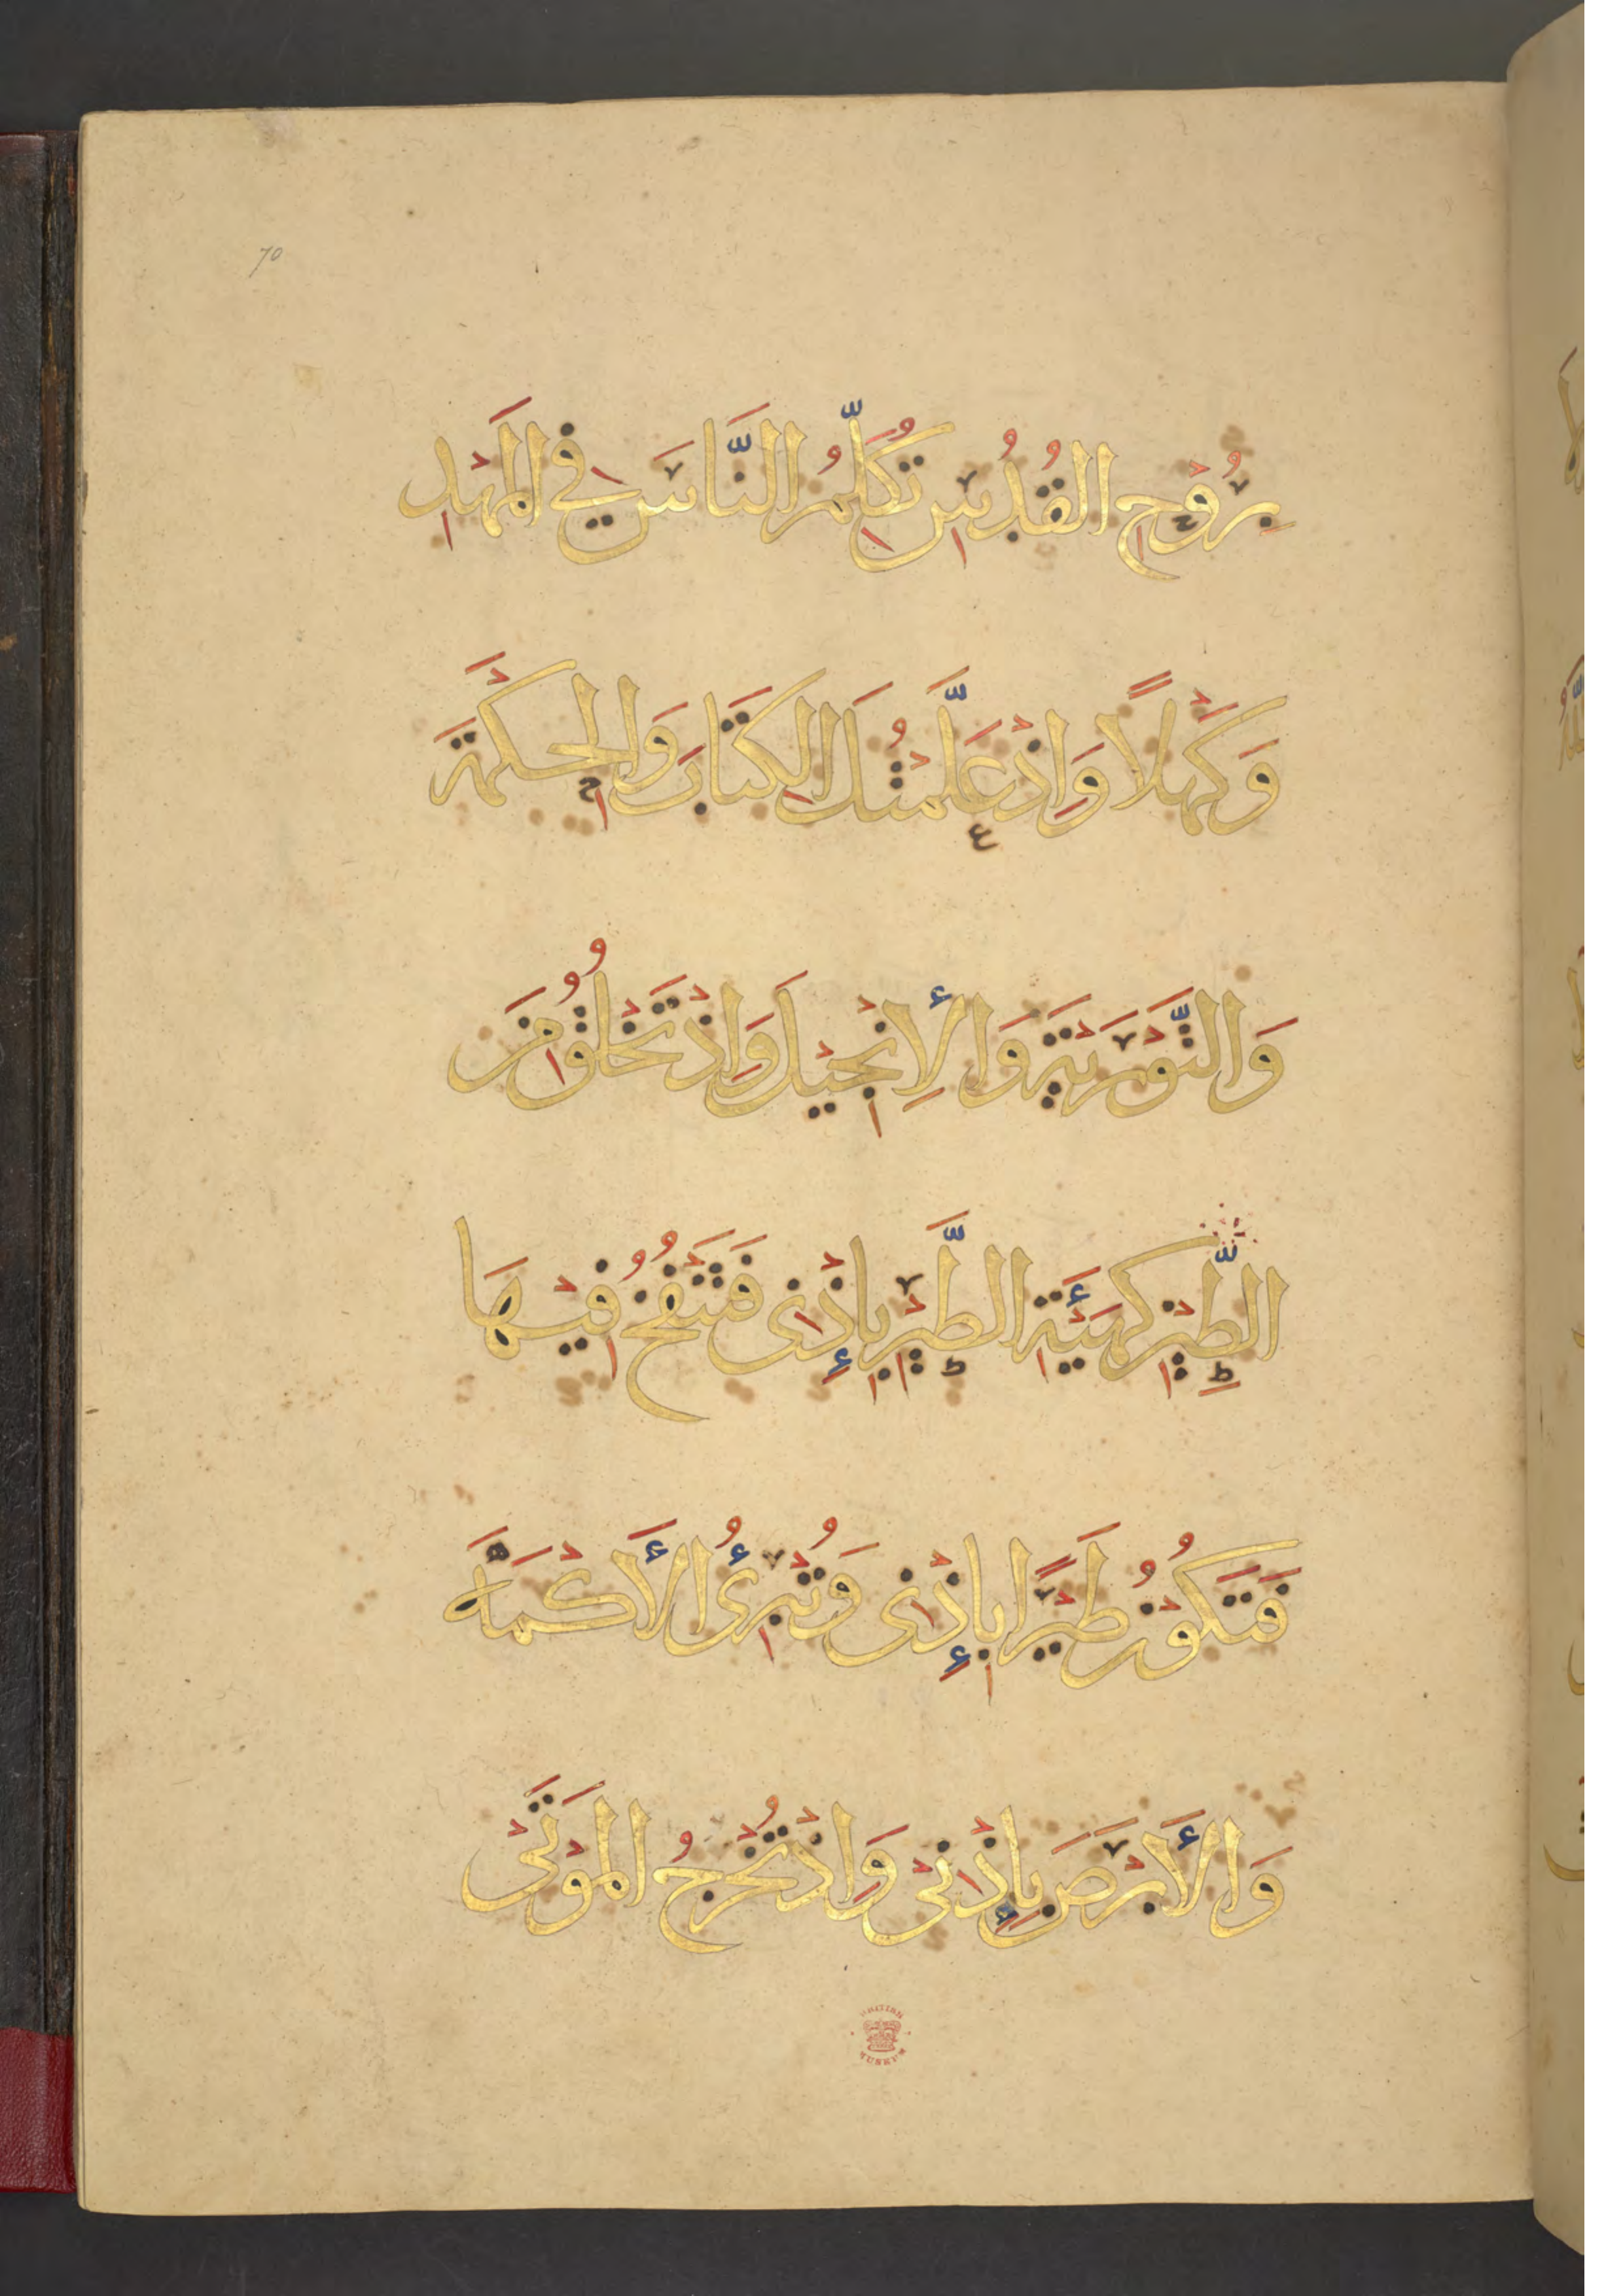 70
بِرُوْحِ القُدُسِ تُكَلِّمُ النَّاسَ فِي المَهْدِ
وَكَهْلًا وَاِذْ عَلَّمْتُكَ الكِتَابَ وَالحِكْمَةَ
وَالتَّوْرَيةَ وَالأِنْجِيْلَ وَاِذْ تَخْلُقُ مِنَ
الطِّيْنِ كَهَيْئَةِ الطَّيْرِ بِإِذْنِى فَتَنْفُخُ فِيْهَا
فَتَكُوْنُ طَيْرًا بِإِذْنِى وَتُبْرِئُ الأَكْمَهَ
وَالأَبْرَصَ بِإِذْنِىْ وَاِذْ تُخْرِجُ المَوْتَىْ
BRITISH MUSEUM